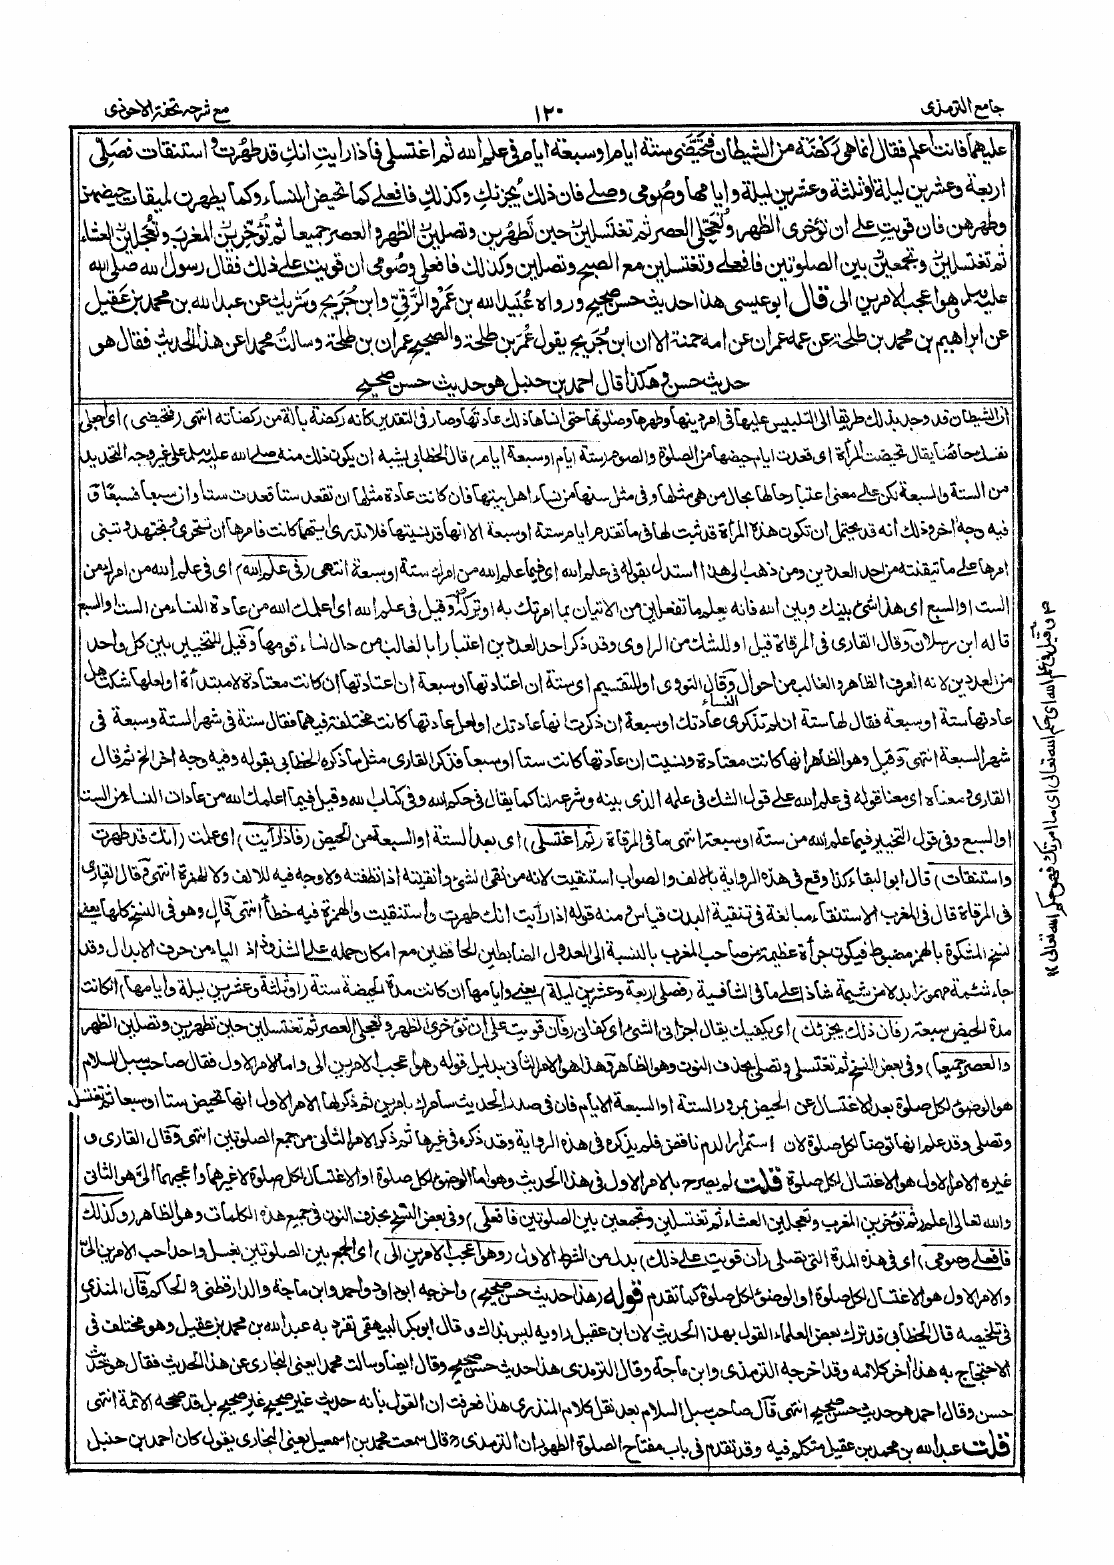 جامع الترمذی
١٢٠
مع شرحہ تحفۃ الاحوذی
علیهما فانت اعلم فقال انما هی رکضة من الشیطان فتحیضی ستة ایام او سبعة ایام فی علم الله ثم اغتسلی فاذا رایت انک قد طهرت و استنقات فصلی
اربعة وعشرین لیلة او ثلثة وعشرین لیلة وایامها وصومی وصلی فان ذلک یجزئک وکذلک فافعلی کما تحیض النساء وکما یطهرن لمیقات حیضهن
وطهرهن فان قویت علی ان تؤخری الظهر و تعجلی العصر ثم تغتسلین حین تطهرین وتصلین الظهر و العصر جمیعا ثم تؤخرین المغرب و تعجلین العشاء
ثم تغتسلین و تجمعین بین الصلوتین فافعلی وتغتسلین مع الصبح وتصلین وکذلک فافعلی وصومی ان قویت علی ذلک فقال رسول الله صلی الله
علیه وسلم هو اعجب الامرین الی قال ابو عیسی هذا حدیث حسن صحیح ورواه عبید الله بن عمرو الرقی وابن جریج وشریک عن عبد الله بن محمد بن عقیل
عن ابراهیم بن محمد بن طلحة عن عمه عمران عن امه حمنة الا ان ابن جریج یقول عمر بن طلحة والصحیح عمران بن طلحة وسالت محمدا عن هذا الحدیث فقال هو
حدیث حسن وهکذا قال احمد بن حنبل هو حدیث حسن صحیح
ان الشیطان قد وجد بذلک طریقا الی التلبیس علیها فی امر دینها وطهرها وصلوتها حتی انساها ذلک عادتها وصار فی التقدیر کانه رکضة بالة من رکضاته انتهی (فتحیضی) ای اجعلی
نفسک حائضا یقال تحیضت المرأة ای قعدت ایام حیضها من الصلوة والصوم (ستة ایام او سبعة ایام) قال الخطابی یشبه ان یکون ذلک منه صلی الله علیه وسلم علی غیر وجه التحدید
من الستة والسبعة لکن علی معنی اعتبار حالها بحال من هی مثلها وفی مثل سنها من نساء اهل بیتها فان کانت عادة مثلها ان تقعد ستا قعدت ستا وان سبعا فسبعا ق
فیه وجه اخر وذلک أنه قد یحتمل ان تکون هذه المرأة قد ثبت لها فی ما تقدم ایام ستة او سبعة الا انها قد نسیتها فلا تدری ایتهما کانت فامرها ان تتحری وتجتهد وتبنی
امرها علی ما تیقنته من احد العددین ومن ذهب الی هذا استدل بقوله فی علم الله ای فیما علم الله من امرک ستة او سبعة انتهی (فی علم الله) ای فی علم الله من امرک من
الست او السبع ای هذا شئ بینک وبین الله فانه یعلم ما تفعلین من الاتیان بما امرتک به او ترکه وقیل فی علم الله ای اعلمک الله من عادة النساء من الست والسبع
قاله ابن رسلان وقال القاری فی المرقاة قیل او للشک من الراوی وقد ذکر احد العددین اعتبارا بالغالب من حال نساء قومها وقیل للتخییر بین کل واحد
من العددین لانه العرف الظاهر والغالب من احوال النساء وقال النووی او للتقسیم ای ستة ان اعتادتها او سبعة ان اعتادتها ان کانت معتادة لا مبتدأة او لعلها شکت هل
عادتها ستة او سبعة فقال لها ستة ان لم تذکری عادتک او سبعة ان ذکرت انها عادتک او لعل عادتها کانت مختلفة فیهما فقال ستة فی شهر الستة وسبعة فی
شهر السبعة انتهی وقیل وهو الظاهر انها کانت معتادة ونسیت ان عادتها کانت ستا او سبعا فذکر القاری مثل ما ذکره الخطابی بقوله وفیه وجه اخر الخ ثم قال
القاری ومعناه ای معنا قوله فی علم الله علی قول الشک فی علمه الذی بینه وشرعه لنا کما یقال فی حکم الله وفی کتاب الله وقیل فیما اعلمک الله من عادات النساء من الست
او السبع وفی قول التخییر فیما علم الله من ستة او سبعة انتهی ما فی المرقاة (ثم اغتسلی) ای بعد الستة او السبعة من الحیض (فاذا رأیت) ای علمت (انک قد طهرت
واستنقات) قال ابو البقاء کذا وقع فی هذه الروایة بالالف والصواب استنقیت لانه من نقی الشئ وانقیته اذا نظفته ولا وجه فیه للالف ولا للهمزة انتهی قال القاری
فی المرقاة قال فی المغرب الاستنقاء مبالغة فی تنقیة البدن قیاس ومنه قوله اذا رأیت انک طهرت واستنقیت والهمزة فیه خطأ انتهی قال وهو فی النسخ کلها یعنی
نسخ المشکوة بالهمز مضبوط فیکون جرأة عظیمة من صاحب المغرب بالنسبة الی العدول الضابطین الحافظین مع امکان حمله علی الشذوذ اذ الیاء من حرف الابدال وقد
جاء شئمة مهموزا بدلا من شیمة شاذا علی ما فی الشافیة (فصلی اربعة وعشرین لیلة) یعنی وایامها ان کانت مدة الحیضة ستة (او ثلثة وعشرین لیلة وایامها) ان کانت
مدة الحیض سبعة (فان ذلک یجزئک) ای یکفیک یقال اجزانی الشئ ای کفانی (فان قویت علی ان تؤخری الظهر وتعجلی العصر ثم تغتسلین حین تطهرین وتصلین الظهر
والعصر جمیعا) وفی بعض النسخ ثم تغتسلی وتصلی بحذف النون وهو الظاهر وهذا هو الامر الثانی بدلیل قوله وهو اعجب الامرین الی واما الامر الاول فقال صاحب سبل السلام
هو الوضوء لکل صلوة بعد الاغتسال عن الحیض بمرور الستة او السبعة الایام فان فی صدر الحدیث سامرک بامرین ثم ذکر لها الامر الاول انها تحیض ستا او سبعا ثم تغتسل
وتصلی وقد علم انها توضأ لکل صلوة لان استمرار الدم ناقض فلم یذکره فی هذه الروایة وقد ذکره فی غیرها ثم ذکر الامر الثانی من جمع الصلوتین انتهی وقال القاری و
غیره الامر الاول هو الاغتسال لکل صلوة قلت لم یصرح بالامر الاول فی هذا الحدیث وهو اما الوضوء لکل صلوة او الاغتسال لکل صلوة لا غیرهما واعجبهما الی هو الثانی
والله تعالی اعلم (ثم تؤخرین المغرب وتعجلین العشاء ثم تغتسلین وتجمعین بین الصلوتین فافعلی) وفی بعض النسخ بحذف النون فی جمیع هذه الکلمات وهو الظاهر (وکذلک
فافعلی وصومی) ای فی هذه المدة التی تصلی (ان قویت علی ذلک) بدل من الشرط الاول (وهو اعجب الامرین الی) ای الجمع بین الصلوتین بغسل واحد احب الامرین الی
والامر الاول هو الاغتسال لکل صلوة او الوضوء لکل صلوة کما تقدم قوله (هذا حدیث حسن صحیح) واخرجه ابو داود واحمد وابن ماجة والدارقطنی والحاکم قال المنذری
فی تلخیصه قال الخطابی قد ترک بعض العلماء القول بهذا الحدیث لان ابن عقیل راویه لیس بذاک وقال ابو بکر البیهقی تفرد به عبد الله بن محمد بن عقیل وهو مختلف فی
الاحتجاج به هذا اخر کلامه وقد اخرجه الترمذی وابن ماجة وقال الترمذی هذا حدیث حسن صحیح وقال ایضا وسالت محمدا یعنی البخاری عن هذا الحدیث فقال هو حدیث
حسن وقال احمد هو حدیث حسن صحیح انتهی قال صاحب سبل السلام بعد نقل کلام المنذری هذا فعرفت ان القول بأنه حدیث غیر صحیح غیر صحیح بل قد صححه الائمة انتهی
قلت عبد الله بن محمد بن عقیل متکلم فیه وقد تقدم فی باب مفتاح الصلوة الطهور ان الترمذی قال سمعت محمد بن اسمعیل یعنی البخاری یقول کان احمد بن حنبل
وقیل فی علم الله ای حکم الله تعالی ای ما امرتک فهو حکم الله تعالی ١٢